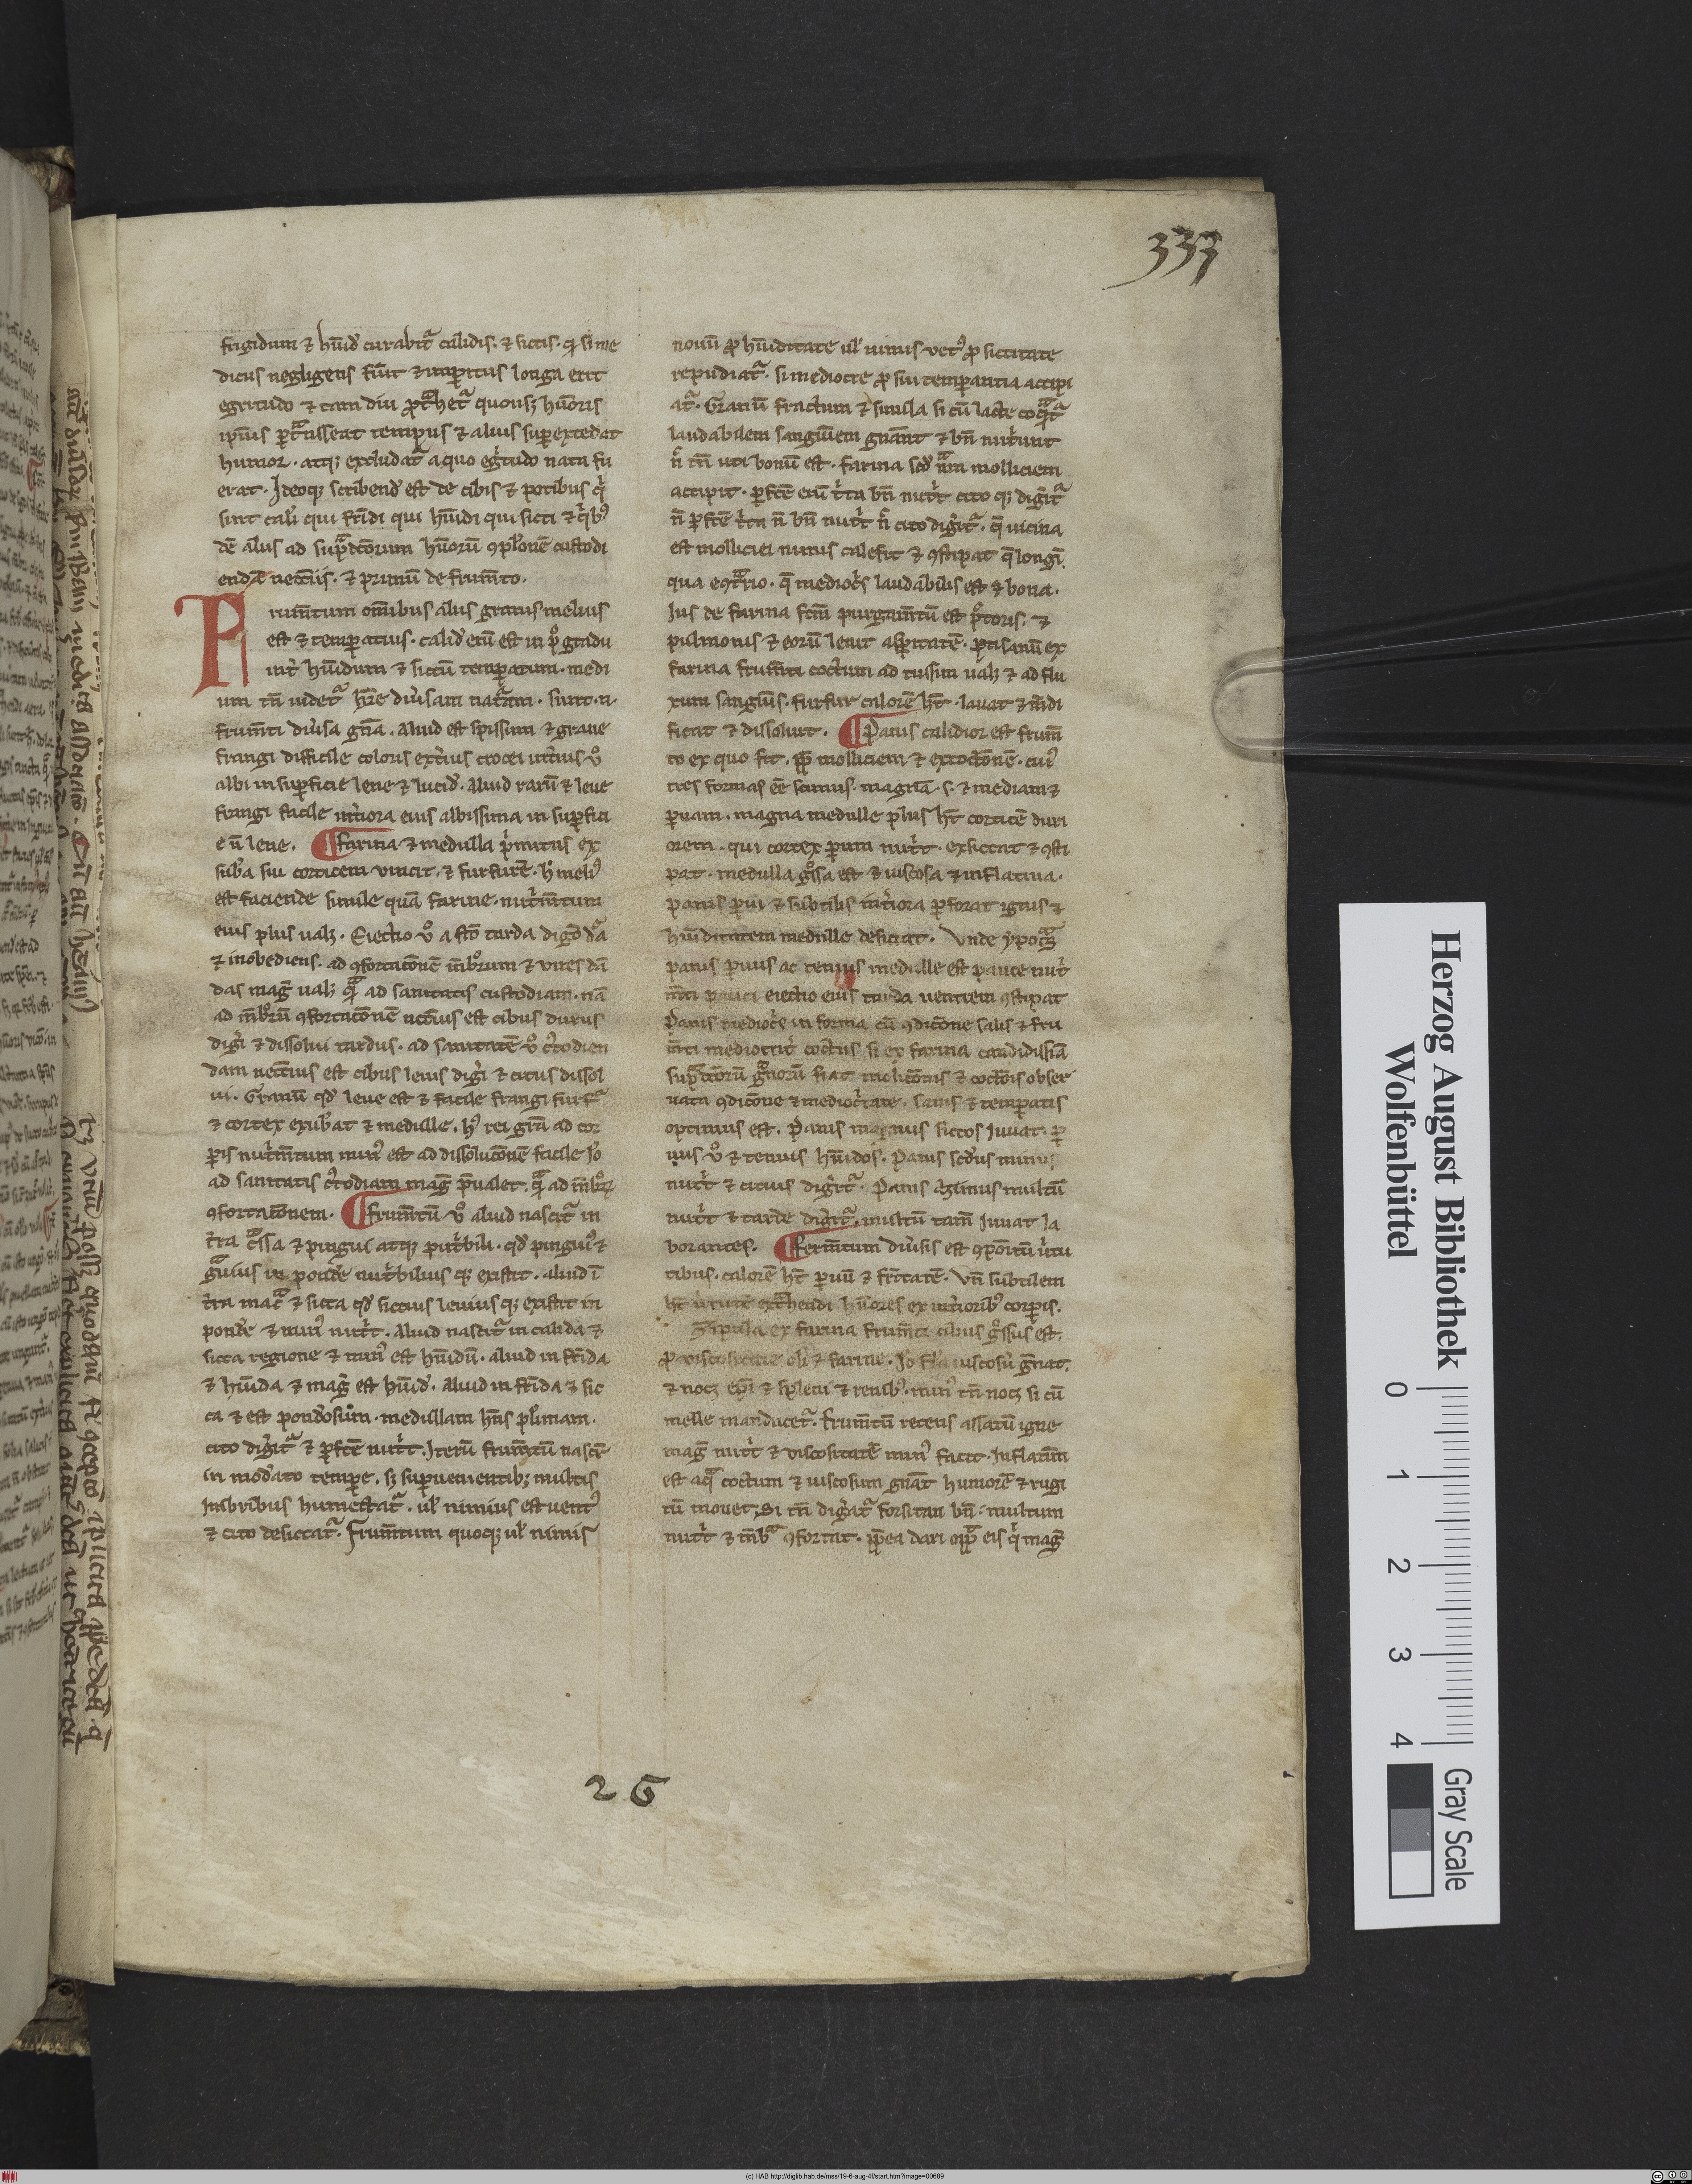 333
frigidum ⁊ hūid᷒ curabit᷑ calidis. ⁊ siccis. q᷒ si me
dicus negligens fūit ⁊ imꝑitus longa erit
egritudo ⁊ tam diu ꝓt᷑het᷑ quousqꝫ hūoris
ip̄ius ꝑt᷑nsseat tempus ⁊ alius suꝑexcedat
humor. atqꝫ excludat᷑ a quo eg͛tudo nata fu
erat. Ideoqꝫ scribend᷒ est de cibis ⁊ potibus q͛
sint cali᷒ qui fri̅di qui hūidi qui sicci ⁊ q͛bꝰ
de alius ad sup᷑dc̄orum hūorū ꝯplōnē custodi
end᷑ necc̄iis. ⁊ primū de frumēto.
Frumētum om̄ibus aliis granis melius
est ⁊ temꝑatius. calid᷒ enī est in p͛ gradu
int͛ hūidum ⁊ siccū temꝑatum. medi
um tn̄ uidet᷑ hr̄e diu͛sam nat᷑am. sunt .n.
frumēti diu͛sa gn̄a. aliud est spissum ⁊ graue
frangi difficile coloris ext͛ius crocei int͛ius ū
albi in suꝑficie lene ⁊ lucid᷒. aliud rarū ⁊ leue
frangi facile int͛iora eius albissima in suꝑfici
e n̄ lene. ¶ farina ⁊ medulla p͛mitus ex
sub᷒a sui corticem vincit. ⁊ furfurē. h᷒ meliꝰ
est faciende simile quā farine. nut͛mētum
eius plus ualꝫ. Eiectio ū a sto᷒ tarda digo᷒ da᷒
⁊ inobediens. ad ꝯfortacōnē mēbrorum ⁊ uires dā
das mag̅ ualꝫ q᷑ ad sanitatis custodiam. nā
ad mēbrū ꝯfortacōnē necc̄ius est cibus durus
dig͛i ⁊ dissolui tardus. ad sanitatē ū c᷒todien
dam necc̄ius est cibus leuis dig͛i ⁊ citus dissol
ui. Granū qd᷒ leue est ⁊ facile frangi furf᷑
⁊ cortex exub᷒at ⁊ medulle. hꝰ rei gr̄a ad cor
ꝑis nut͛mētum minꝰ est ad dissolucōnē facile sꝫ
ad sanitatis c᷒todiam mag̅ p̄ualet. q᷑ ad mēbꝝ
ꝯfortacōnem. ¶ frumētū ū aliud nascit᷑ in
t͛ra c᷑ssa ⁊ pingui atqꝫ put͛bili. qd᷒ pinguiꝰ ⁊
g᷑uius in pond͛e nut͛bilius qꝫ existit. aliud ī
t͛ra mac᷑ ⁊ sicca qd᷒ siccius leuius qꝫ existit in
pond͛e ⁊ minꝰ nut͛t. Aliud nascit᷑ in calida ⁊
sicca regione ⁊ minꝰ est hūidū. aliud in fri̅da
⁊ hūida ⁊ mag̅ est hūid᷒. Aliud in fri̅da ⁊ sic
ca ⁊ est pond᷒osum. medullam hn̄s plimam.
cito dig͛it᷑ ⁊ ꝑfcē nut͛t. Iterū frumētū nascit᷑
in mod͛ato tempe͛. sꝫ suꝑuenientibꝫ multis
imbribus humectat᷑. ul᷒ nimius est uentꝰ
⁊ cito desiccat᷑. Frumētum quoqꝫ ul᷒ nimis
nouū ꝓ hūiditate ul᷒ nimis vetꝰ ꝓ siccitate
repudiat᷑. si mediocre ꝓ sui temꝑantia accipi
at᷑. Granū fractum ⁊ simila si cū lacte coq͛t᷑
laudabilem sanguinem gn̄ant ⁊ bn̄ nut͛unt
n͛ tn̄ uti bonū est. farina scd᷒ nām molliciem
accipit. ꝑfcē enī t͛ta bn̄ nut͛t cito qꝫ dig͛it᷑
n̄ ꝑfcē t͛ta n̄ bn̄ nut͛t n͛ cito dig͛it᷑. q̄ uicina
est molliciei minus calefit ⁊ ꝯstipat q̄ longi
qua eꝯt᷑rio. q̄ mediocr͛s laudabilis est ⁊ bona.
Ius de farina fcm̄ purgamētū est pc͛toris. ⁊
pulmonis ⁊ eorū lenit asꝑitatē. ptisanū ex
farina frumēti coctum ad tussim ualꝫ ⁊ ad flu
xum sanguis. furfur calorē ht̄. lauat ⁊ mūdi
ficat ⁊ dissoluit. ¶ Panis calidior est frumē
to ex quo fit. ꝓp̄ molliciem ⁊ excoctōnē. cuiꝰ
tres formas eē scimus. magnā .s. ⁊ mediam ⁊
ꝑuam. magna medulle plus ht̄ corticē duri
orem. qui cortex ꝑum nut͛t. exsiccat ⁊ ꝯsti
pat. medulla g͛ssa est ⁊ uiscosa ⁊ inflatiua.
panis ꝑui ⁊ subtilis int͛iora ꝑforat ignis ⁊
hūiditatem medulle desiccat. Unde ypoc᷑s
panis ꝑuus ac tenuis medulle est pauce nut͛
mēti pauci eiectio eius tarda uentrem ꝯstipat
Panis mediocr͛s in forma cū ꝯdicōne salis ⁊ fru
mēti mediocrit͛ coctus si ex farina candidissīa
sup᷑dc̄orū g᷑norū fiat molicōnis ⁊ coctōis obser
uata ꝯdicōne ⁊ mediocr͛tate. sanis ⁊ temꝑatis
optimus est. Panis magnus siccos iuuat. ꝑ
uus ū ⁊ tenuis hūidos. Panis scd᷒us minus
nut͛t ⁊ citius dig͛it᷑. Panis azimus multū
nut͛t ⁊ tarde dig͛it᷑. multū tam̄ iuuat la
borantes. ¶ Fermētum diu͛sis est ꝯpōitū u͛tu
tibus. calorē ht̄ ꝑuū ⁊ fri̅tatē. Un̄ subtilem
ht̄ u͛tutē ext᷑hendi hūores ex int͛ioribꝰ corꝑis.
Zipula ex farina frumēti cibus g͛ssus est.
ꝓ viscositate oli ⁊ farine. Io᷒ fla᷒ uiscosū gn̄at.
⁊ nocꝫ epi̅ ⁊ spleni ⁊ renibꝰ. minꝰ tn̄ nocꝫ si cū
melle manducet᷑. frumētū recens assatū igne
mag̅ nut͛t ⁊ viscositatē minꝰ facit. Inflatiuū
est aq᷑ coctum ⁊ uiscosum gn̄at humorē ⁊ rugi
tū mouet. Si tn̄ dig͛at᷑ forsitan bn̄. multum
nut͛t ⁊ mēb᷑ ꝯfortat. ꝓp̄ea dari opꝫ eis q͛ mag̅
26
Herzog August Bibliothek
Wolfenbüttel
0 1 2 3 4
Gray Scale
(c) HAB http://diglib.hab.de/mss/19-6-aug-4f/start.htm?image=00689